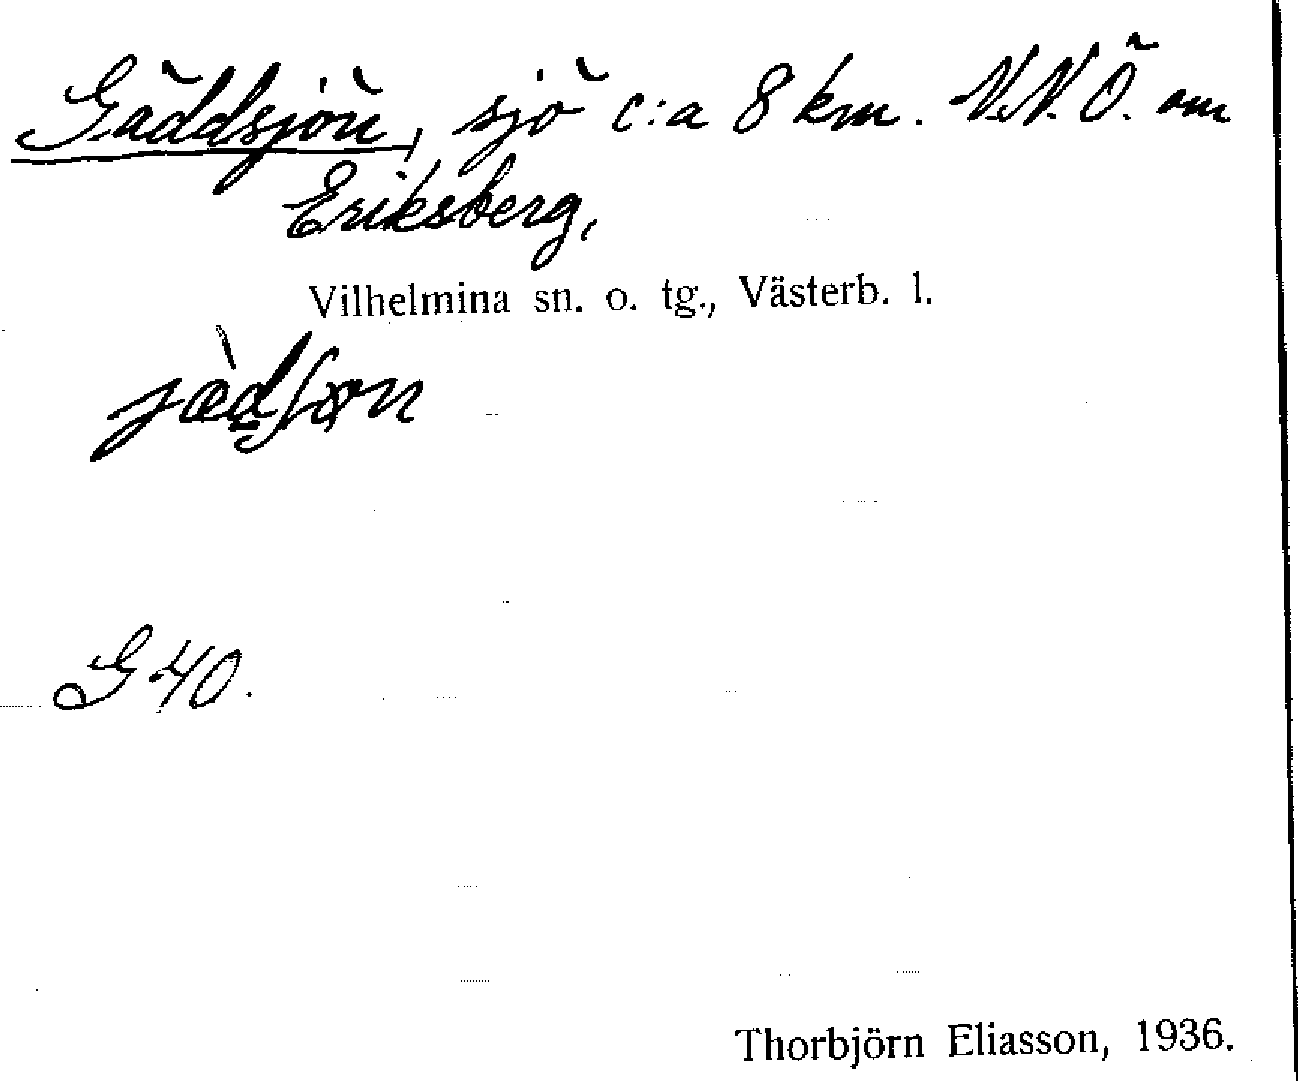 Gäddsjön, sjö c:a 8 km. N.N.Ö. om
Eriksberg,
Vilhelmina sn. o. tg., Västerb. l.
G 40.
Thorbjörn Eliasson, 1936.